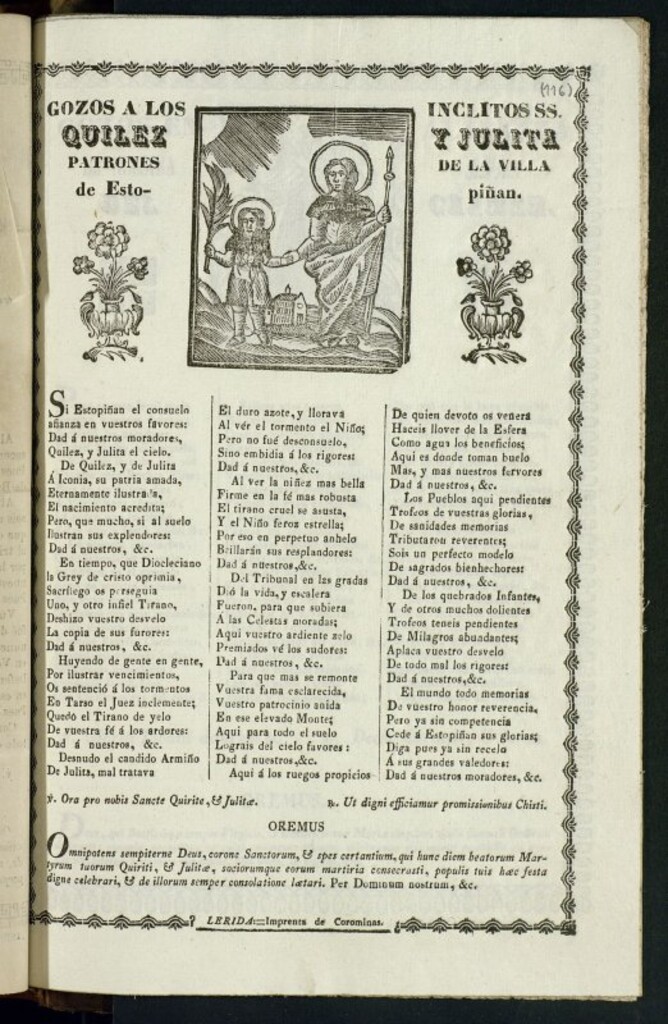 (116)
GOZOS A LOS INCLITOS SS.
QUILEZ Y JULITA
PATRONES DE LA VILLA
de Esto- piñan.
Si Estopiñan el consuelo
afianza en vuestros favores:
Dad á nuestros moradores,
Quilez, y Julita el cielo.
De Quilez, y de Julita
Á Iconia, su patria amada,
Eternamente ilustrada,
El nacimiento acredita;
Pero, que mucho, si al suelo
Ilustran sus explendores:
Dad á nuestros, &c.
En tiempo, que Diocleciano
la Grey de cristo oprimia,
Sacrílego os perseguia
Uno, y otro infiel Tirano,
Deshizo vuestro desvelo
La copia de sus furores:
Dad á nuestros, &c.
Huyendo de gente en gente,
Por ilustrar vencimientos,
Os sentenció á los tormentos
En Tarso el Juez inclemente;
Quedó el Tirano de yelo
De vuestra fé á los ardores:
Dad á nuestros, &c.
Desnudo el candido Armiño
De Julita, mal trataba
El duro azote, y llorava
Al vér el tormento el Niño;
Pero no fué desconsuelo,
Sino embidia á los rigores:
Dad á nuestros, &c.
Al ver la niñez mas bella
Firme en la fé mas robusta
El tirano cruel se asusta,
Y el Niño feroz estrella;
Por eso en perpetuo anhelo
Brillarán sus resplandores:
Dad á nuestros,&c.
Del Tribunal en las gradas
Dió la vida, y escalera
Fueron, para que subiera
Á las Celestas moradas;
Aqui vuestro ardiente zelo
Premiados vé los sudores:
Dad á nuestros, &c.
Para que mas se remonte
Vuestra fama esclarecida,
Vuestro patrocinio anida
En ese elevado Monte;
Aqui para todo el suelo
Lograis del cielo favores:
Dad á nuestros,&c.
Aqui á los ruegos propicios
De quien devoto os venera
Haceis llover de la Esfera
Como agua los beneficios;
Aqui es donde toman buelo
Mas, y mas nuestros fervores
Dad á nuestros, &c.
Los Pueblos aqui pendientes
Trofeos de vuestras glorias,
De sanidades memorias
Tributaron reverentes;
Sois un perfecto modelo
De sagrados bienhechores:
Dad á nuestros, &c.
De los quebrados Infantes,
Y de otros muchos dolientes
Trofeos teneis pendientes
De Milagros abundantes;
Aplaca vuestro desvelo
De todo mal los rigores:
Dad á nuestros,&c.
El mundo todo memorias
De vuestro honor reverencia,
Pero ya sin competencia
Cede á Estopiñan sus glorias;
Diga pues ya sin recelo
A sus grandes valedores:
Dad á nuestros moradores, &c.
℣. Ora pro nobis Sancte Quirite, & Julitæ. ℟. Ut digni efficiamur promissionibus Chisti.
OREMUS
Omnipotens sempiterne Deus, corone Sanctorum, & spes certantium, qui hunc diem beatorum Mar-
tyrum tuorum Quiriti, & Julitæ, sociorumque eorum martiria consecrasti, populis tuis hæc festa
digne celebrari, & de illorum semper consolatione lætari. Per Dominum nostrum, &c.
LERIDA:=Imprenta de Corominas.